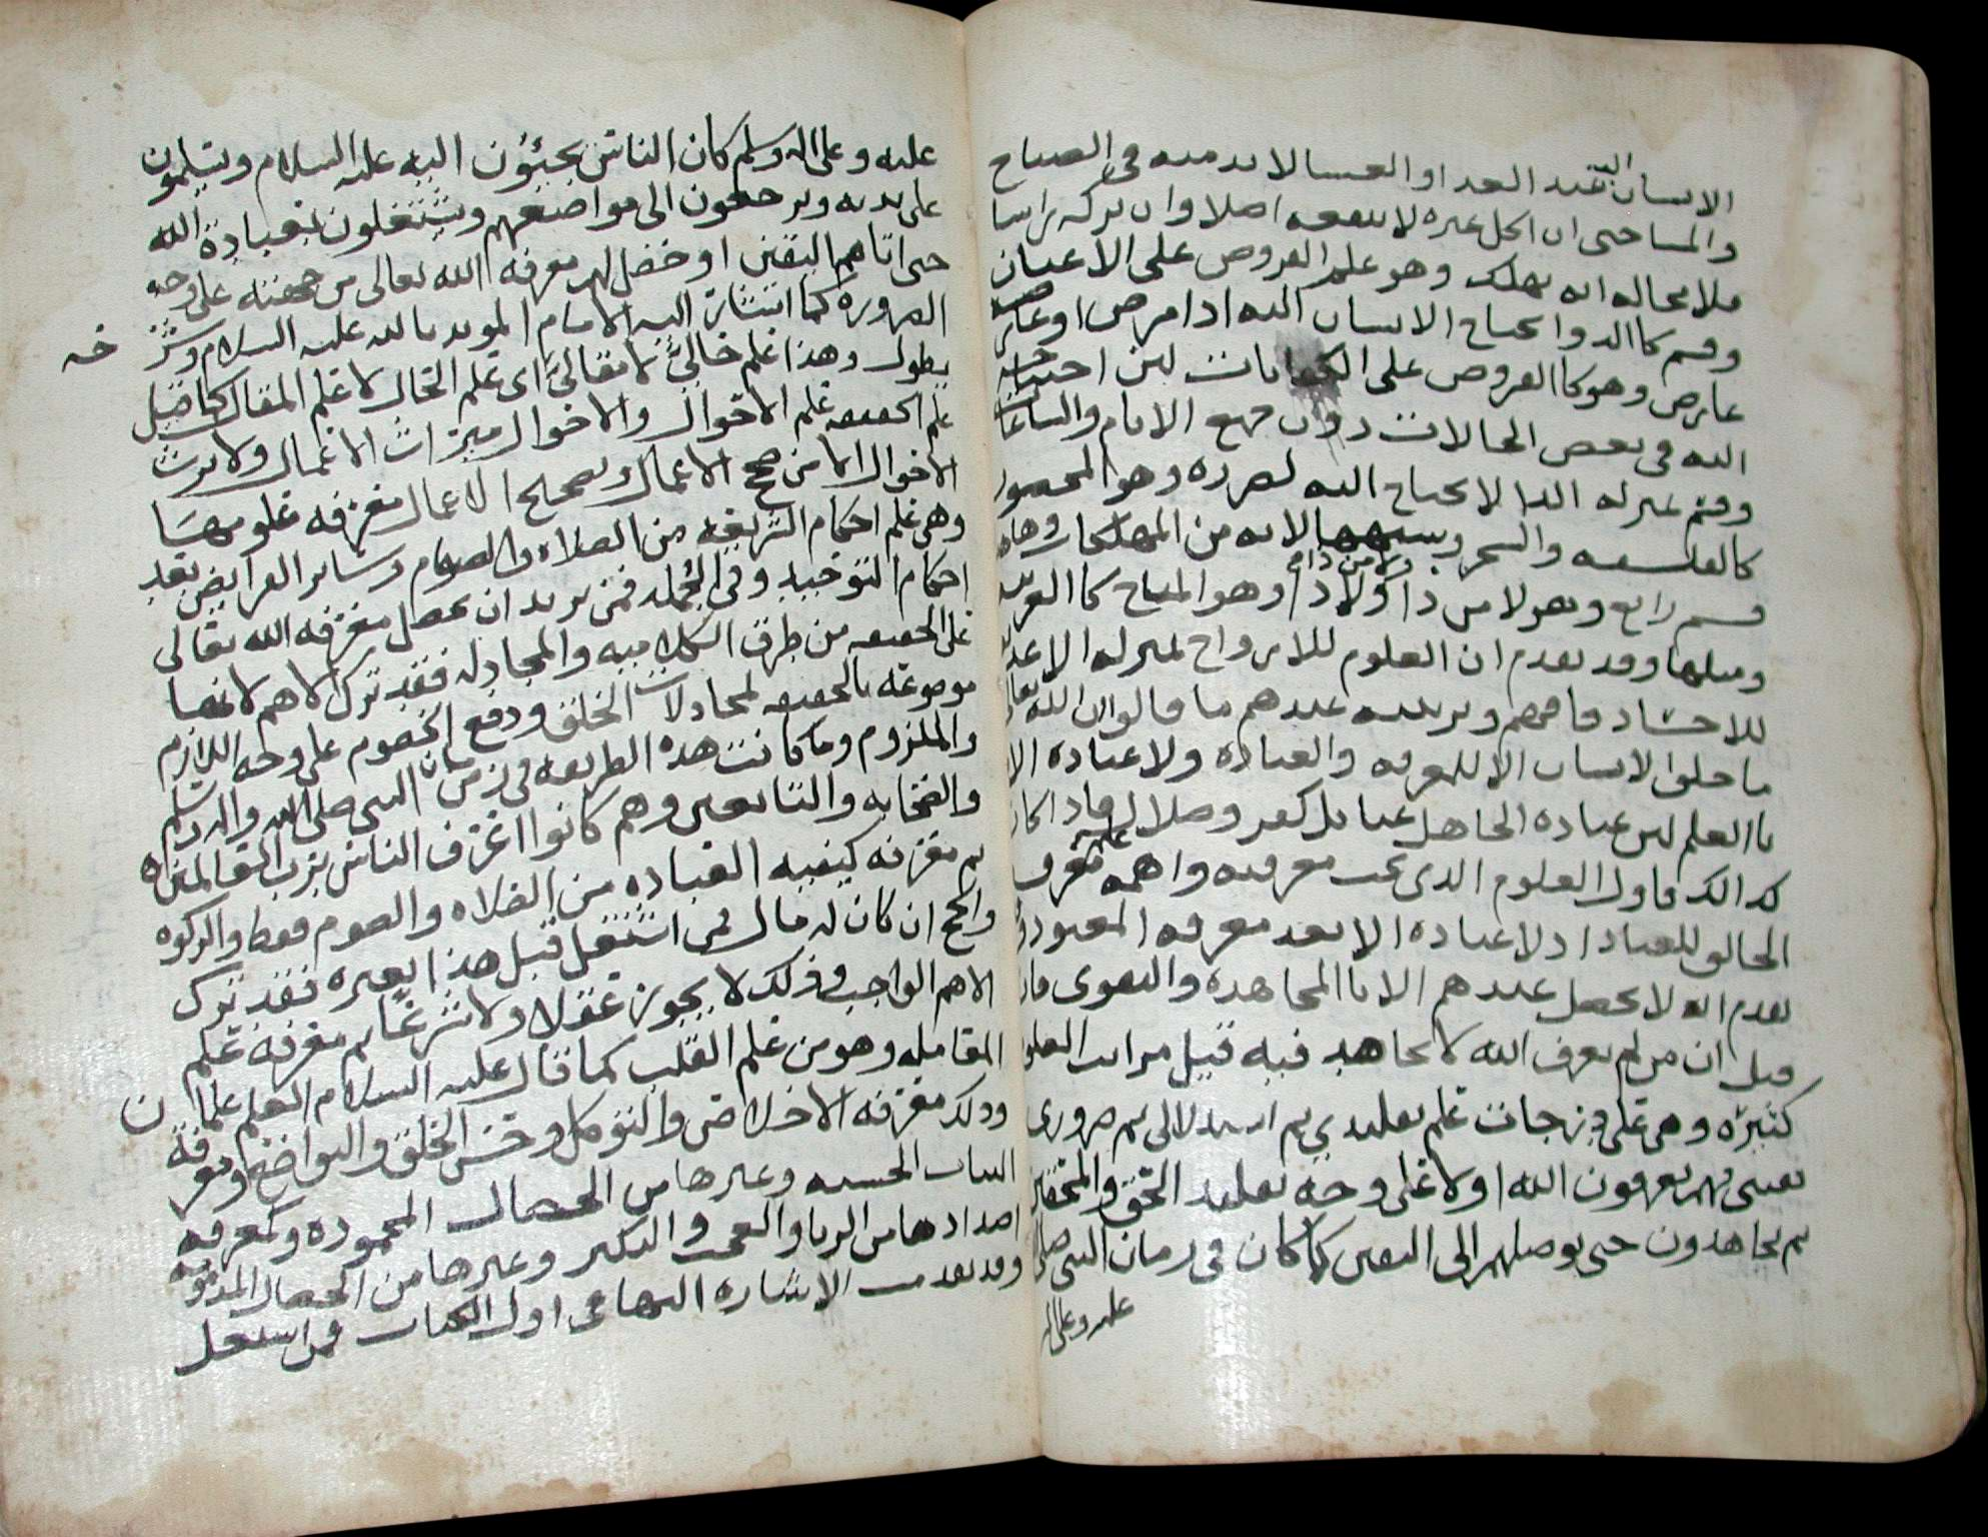 الانسان اليه عند الغدا او العشا لا بد منه في الصباح
والمسا حتى ان اكل غيره لا ينفعه اصلا وان تركه راسا
فلا محاله انه يهلك وهو علم الفروض على الاعيان
وقسم كاالدوا يحتاج الانسان اليه اذا مرض او عارضه
عارض وهو كاالفروض على الكفايات لمن احتاج
اليه في بعض الحالات دون جميع الايام والساعات
وقسم بمنزله الدا لا يحتاج اليه لضرره وهو المحصور
كالفلسفه والسحر وشبهها لانه من المهلكات وهاهنا
قسم رابع وهو لا من ذا ولا من ذا وهو المباح كا العربيه
ومثلها وقد تقدم ان العلوم للارواح بمنزله الاغذيه
للاجساد فافهم وترتيبه عندهم ما قالوا ان الله تعالى
ما خلق الانسان الا للمعرفه والعباده ولا عباده الا
باالعلم لان عباده الجاهل عنا بل كفر وضلال فاذا كان
كذالك فاول العلوم الذي يجب معرفته واهمه علم معرفه
الخالق للعباد اذ لا عباده الا بعد معرفه المعبود وقد
تقدم انه لا يحصل عندهم الا باالمجاهده والتقوى فان
قيل ان من لم يعرف الله لا يجاهد فيه قيل مراتب العلوم
كثيره وهي على درجات علم تقليدي ثم استدلالي ثم ضروري
يعني فهم يعرفون الله اولا على وجه تقليد المحق والمحققين
ثم يجاهدون حتى يوصلهم الى اليقين كما كان في زمان النبي صلى الله
عليه وعلى اله
عليه وعلى اله وسلم كان الناس يجيؤن اليه عليه السلام ويسلمون
على يديه ويرجعون الى مواضعهم ويشتغلون بعبادة الله
حتى اتاهم اليقين او حصل لهم معرفه الله تعالى من جهته على وجه
الضروره كما اشار اليه الامام المويد بالله عليه السلام وشرحه
يطول وهذا علم حاليٌ لا مقاليٌ اي علم الحال لا علم المقال كما قيل
علم الحقيقه علم الاحوال والاحوال ميراث الاعمال ولا يرث
الاحوال الا من صحح الاعمال وتصحيح الاعمال معرفه علومها
وهي علم احكام الشريعه من الصلاه والصوم وسائر الفرايض بعد
احكام التوحيد وفي الجمله فمن يريد ان يحصل معرفه الله تعالى
على الحقيقه من طرق الكلاميه والمجادله فقد ترك الاهم لانها
موضوعه بالحقيقه لمجادلات الخلق ودفع الخصوم على وجه اللازم
والملزوم وما كانت هذه الطريقه في زمان النبي صلى الله عليه واله وسلم
والصحابه والتابعين وهم كانوا اعرف الناس برب العالمين
ثم معرفه كيفيه العباده من الصلاه والصوم فقط والزكوه
والحج ان كان له مال فمن اشتغل قبل هذا بغيره فقد ترك
الاهم الواجب وذلك لا يجوز عقلا ولا شرعًا ثم معرفه علم
المعامله وهو من علم القلب كما قال عليه السلام العلم علمان
وذلك معرفه الاخلاص والتوكل وحسن الخلق والتواضع ومعرفة
النيات الحسنه وغيرها من الخصال المحموده وكمعرفه
اضدادها من الريا والعجب والتكبر وغيرها من الخصال المذمومه
وقد تقدمت الاشاره اليها في اول الكتاب فمن اشتغل